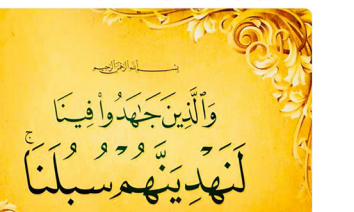 بسم الله الرحمن الرحيم
وَالَّذِينَ جَـٰهَدُوا۟ فِينَا
لَنَهْدِيَنَّهُمْ سُبُلَنَا ۚ